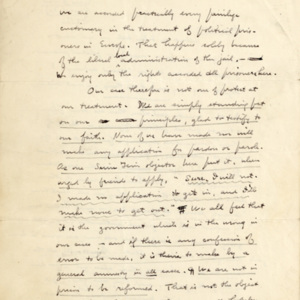 we are accorded practically every privilege
customary in the treatment of political pris-
oners in Europe. That happens solely because
of the liberal local administration of the jail, —
We enjoy only the rights accorded all prisoners here.
Our case therefore is not one of protest at
our treatment. We are simply standing pat
on our principles, glad to testify to
our faith. None of us have made nor will
make any application for pardon or parole.
As one Sinn Fein objector has put it, when
urged by friends to apply, - "Sure, I will not.
I made no application to get in, and I'll
make none to get out." We all feel that
it is the government which is in the wrong in
our cases and if there is any confession of
error to be made, it is theirs to make by a
general amnesty in all cases. We are not in
prison to be reformed. That is not the object